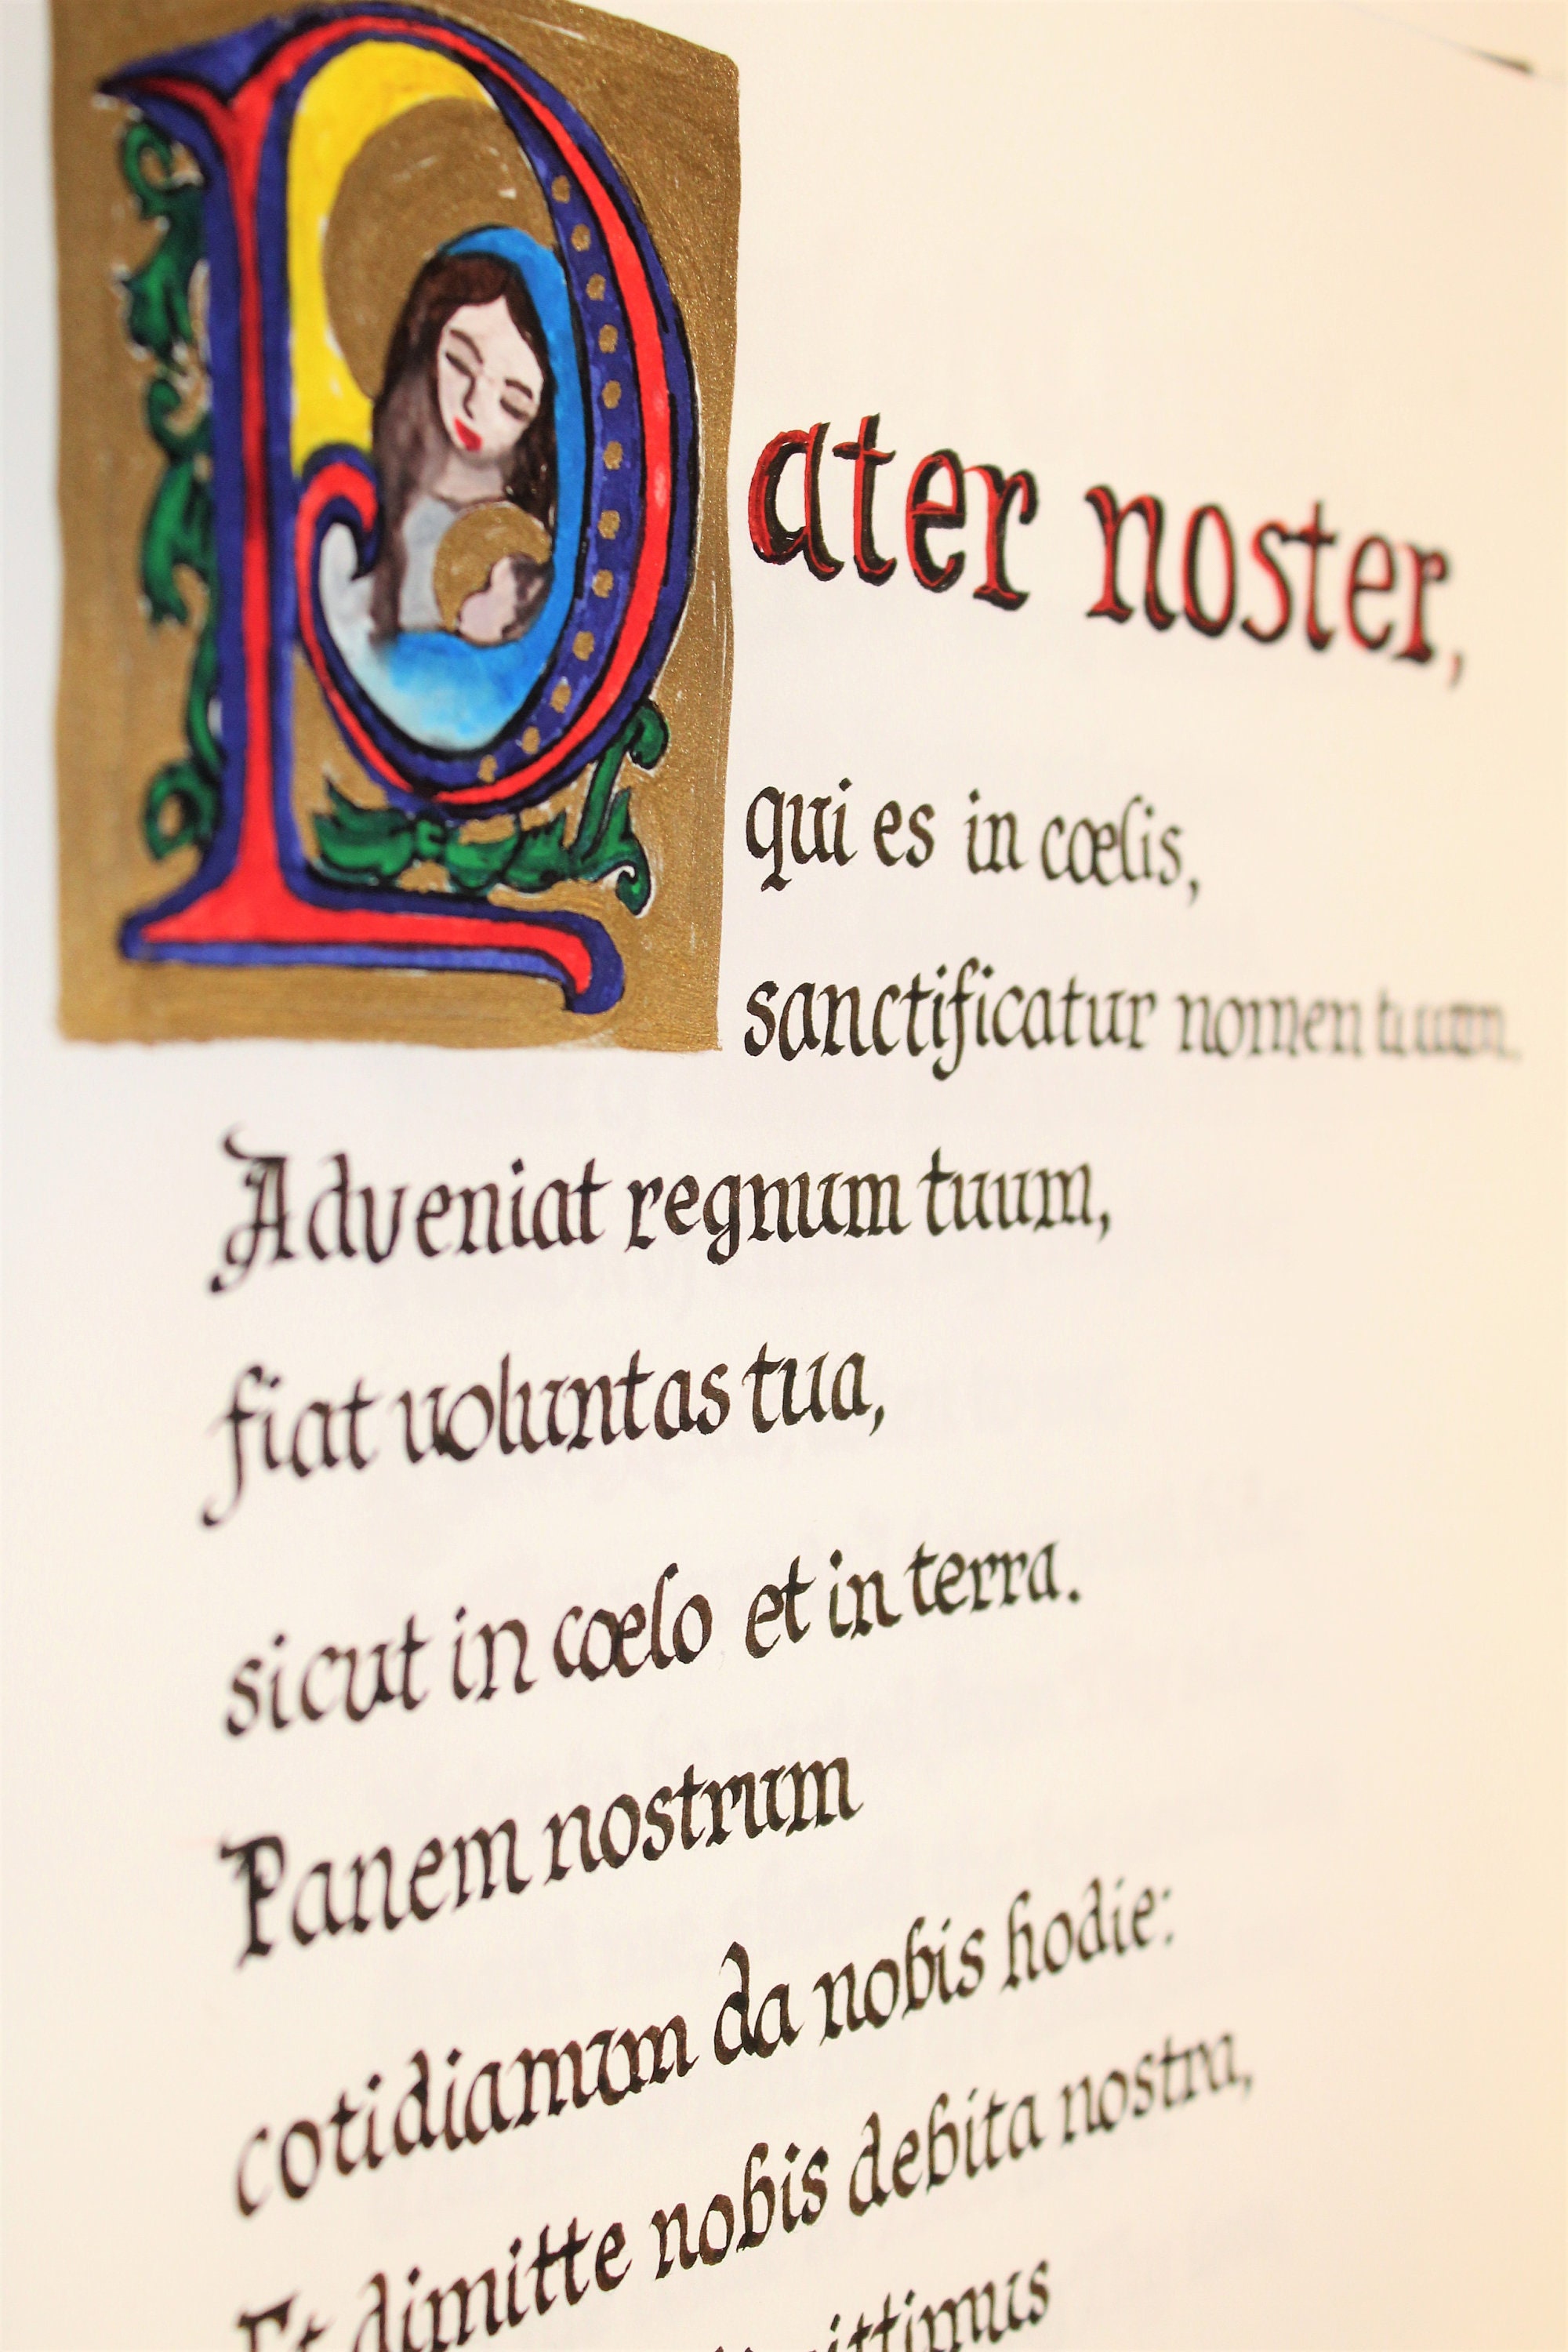 Pater noster,
qui es in cœlis,
sanctificatur nomen tuum.
Adveniat regnum tuum,
fiat uoluntas tua,
sicut in cœlo et in terra.
Panem nostrum
cotidianum da nobis hodie:
Et dimitte nobis debita nostra,